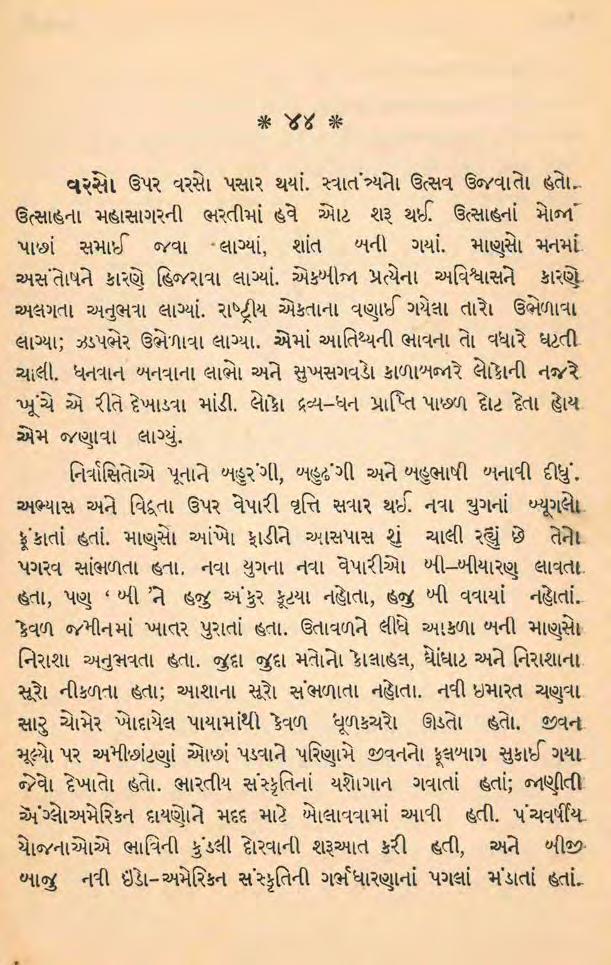 * ૪૪ *
વરસો ઉપર વરસો પસાર થયાં. સ્વાતંત્ર્યનો ઉત્સવ ઉજવાતો હતો.
ઉત્સાહના મહાસાગરની ભરતીમાં હવે ઓટ શરૂ થઈ. ઉત્સાહનાં મોજાં
પાછાં સમાઈ જવા લાગ્યાં, શાંત બની ગયાં. માણસો મનમાં
અસંતોષને કારણે હિજરાવા લાગ્યાં. એકબીજા પ્રત્યેના અવિશ્વાસને કારણે
અલગતા અનુભવા લાગ્યાં. રાષ્ટ્રીય એકતાના વણાઈ ગયેલા તારો ઉભેળાવા
લાગ્યા; ઝડપભેર ઉભેળાવા લાગ્યા. એમાં આતિથ્યની ભાવના તો વધારે ઘટતી
ચાલી. ધનવાન બનવાના લાભો અને સુખસગવડો કાળાબજારે લોકોની નજરે
ખૂંચે એ રીતે દેખાડવા માંડી. લોકો દ્રવ્ય–ધન પ્રાપ્તિ પાછળ દોટ દેતા હોય
એમ જણાવા લાગ્યું.
નિર્વાસિતોએ પૂનાને બહુરંગી, બહુઢંગી અને બહુભાષી બનાવી દીધું.
અભ્યાસ અને વિદ્વતા ઉપર વેપારી વૃત્તિ સવાર થઈ. નવા યુગનાં બ્યૂગલો
ફૂંકાતાં હતાં. માણસો આંખો ફાડીને આસપાસ શું ચાલી રહ્યું છે તેનો
પગરવ સાંભળતા હતા. નવા યુગના નવા વેપારીઓ બી–બીયારણ લાવતા
હતા, પણ ‘બી’ને હજુ અંકુર ફૂટયા નહોતા, હજુ બી વવાયાં નહોતાં.
કેવળ જમીનમાં ખાતર પુરાતાં હતા. ઉતાવળને લીધે આકળા બની માણસો
નિરાશા અનુભવતા હતા. જુદા જુદા મતોનો કોલાહલ, ઘોંઘાટ અને નિરાશાના
સૂરો નીકળતા હતા; આશાના સૂરો સંભળાતા નહોતા. નવી ઇમારત ચણવા
સારુ ચોમેર ખોદાયેલ પાયામાંથી કેવળ ધૂળકચરો ઊડતો હતો. જીવન
મૂલ્યો પર અમીછાંટણાં ઓછાં પડવાને પરિણામે જીવનનો ફૂલબાગ સુકાઈ ગયા
જેવો દેખાતો હતો. ભારતીય સંસ્કૃતિનાં યશોગાન ગવાતાં હતાં; જાણીતી
ઍંગ્લોઅમેરિકન દાયણોને મદદ માટે બોલાવવામાં આવી હતી. પંચવર્ષીય
યોજનાઓએ ભાવિની કુંડલી દોરવાની શરૂઆત કરી હતી, અને બીજી
બાજુ નવી ઇંડો–અમેરિકન સંસ્કૃતિની ગર્ભધારણાનાં પગલાં મંડાતાં હતાં.